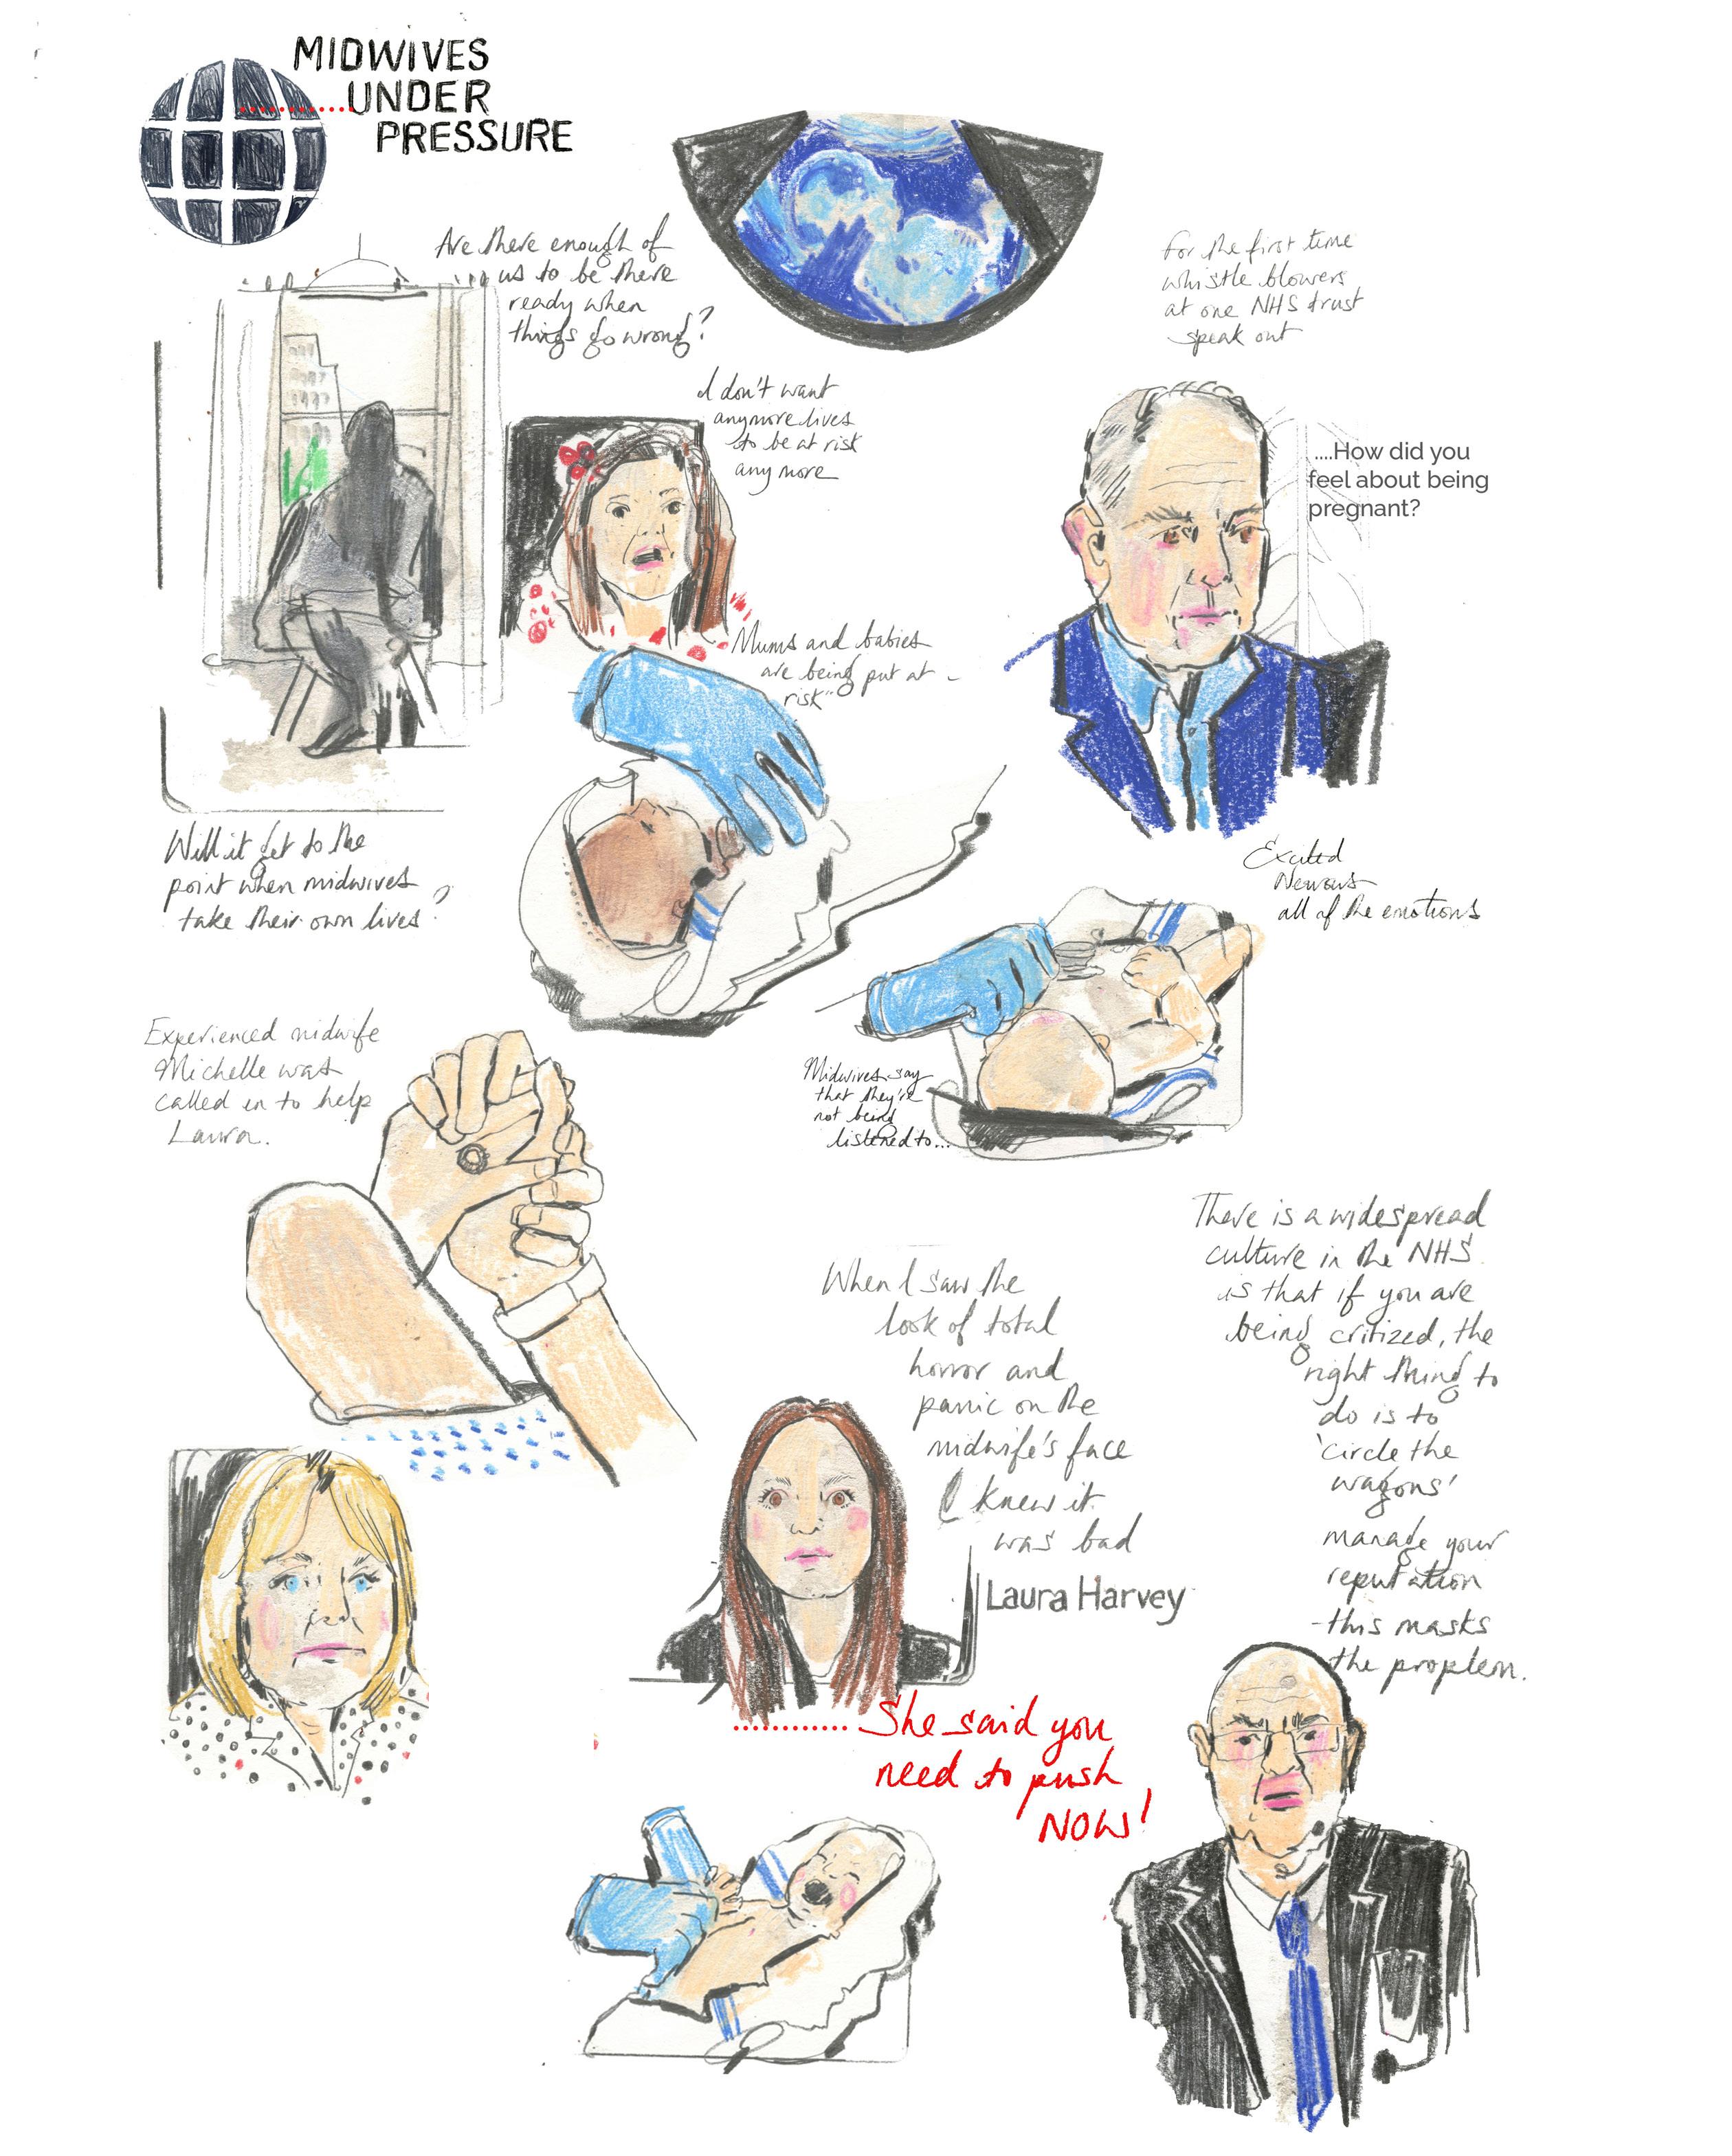 MIDWIVES
UNDER
PRESSURE
Are there enough of
us to be there
ready when
things go wrong?
For the first time
whistle blowers
at one NHS trust
speak out
I don't want
anymore lives
to be at risk
any more
....How did you
feel about being
pregnant?
Mums and babies
are being put at
risk"
Will it get to the
point when midwives
take their own lives?
Excited
Nervous
all of the emotions
Experienced midwife
Michelle was
called in to help
Laura.
Midwives say
that they're
not being
listened to...
There is a widespread
culture in the NHS
is that if you are
being critized, the
right thing to
do is to
'circle the
wagons'
manage your
reputation
-this masks
the proplem.
When I saw the
look of total
horror and
panic on the
midwife's face
I knew it
was bad
Laura Harvey
She said you
need to push
NOW!